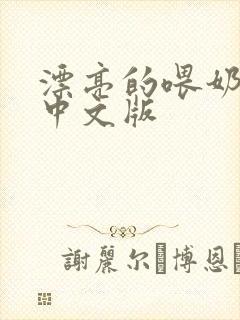 漂亮的喂奶
中文版
謝麗尔 博恩